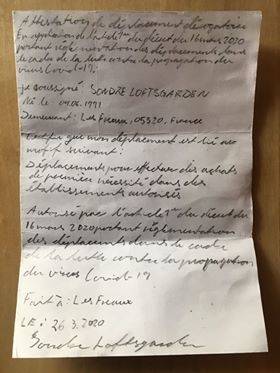 Attestation de déplacement dérogatoire
En application de l'article 1er du décret du 16 mars 2020
portant réglementation des déplacements dans
le cadre de la lutte contre la propagation du
virus Covid-19:
je soussigné SONDRE LOFTSGARDEN
Né le: 04.06.1991
Demeurant: Les Freaux, 05320, France
Certifie que mon déplacement est lié au
motif suivant:
Déplacements pour effectuer des achats
de première nécessité dans des
établissements autorisés
Autorisé par l'article 1er du décret du
16 mars 2020 portant réglementation
des déplacements dans le cadre
de la lutte contre la propagation
du virus Covid-19
Fait à: Les Freaux
LE: 26.3.2020
Sondre Loftsgarden